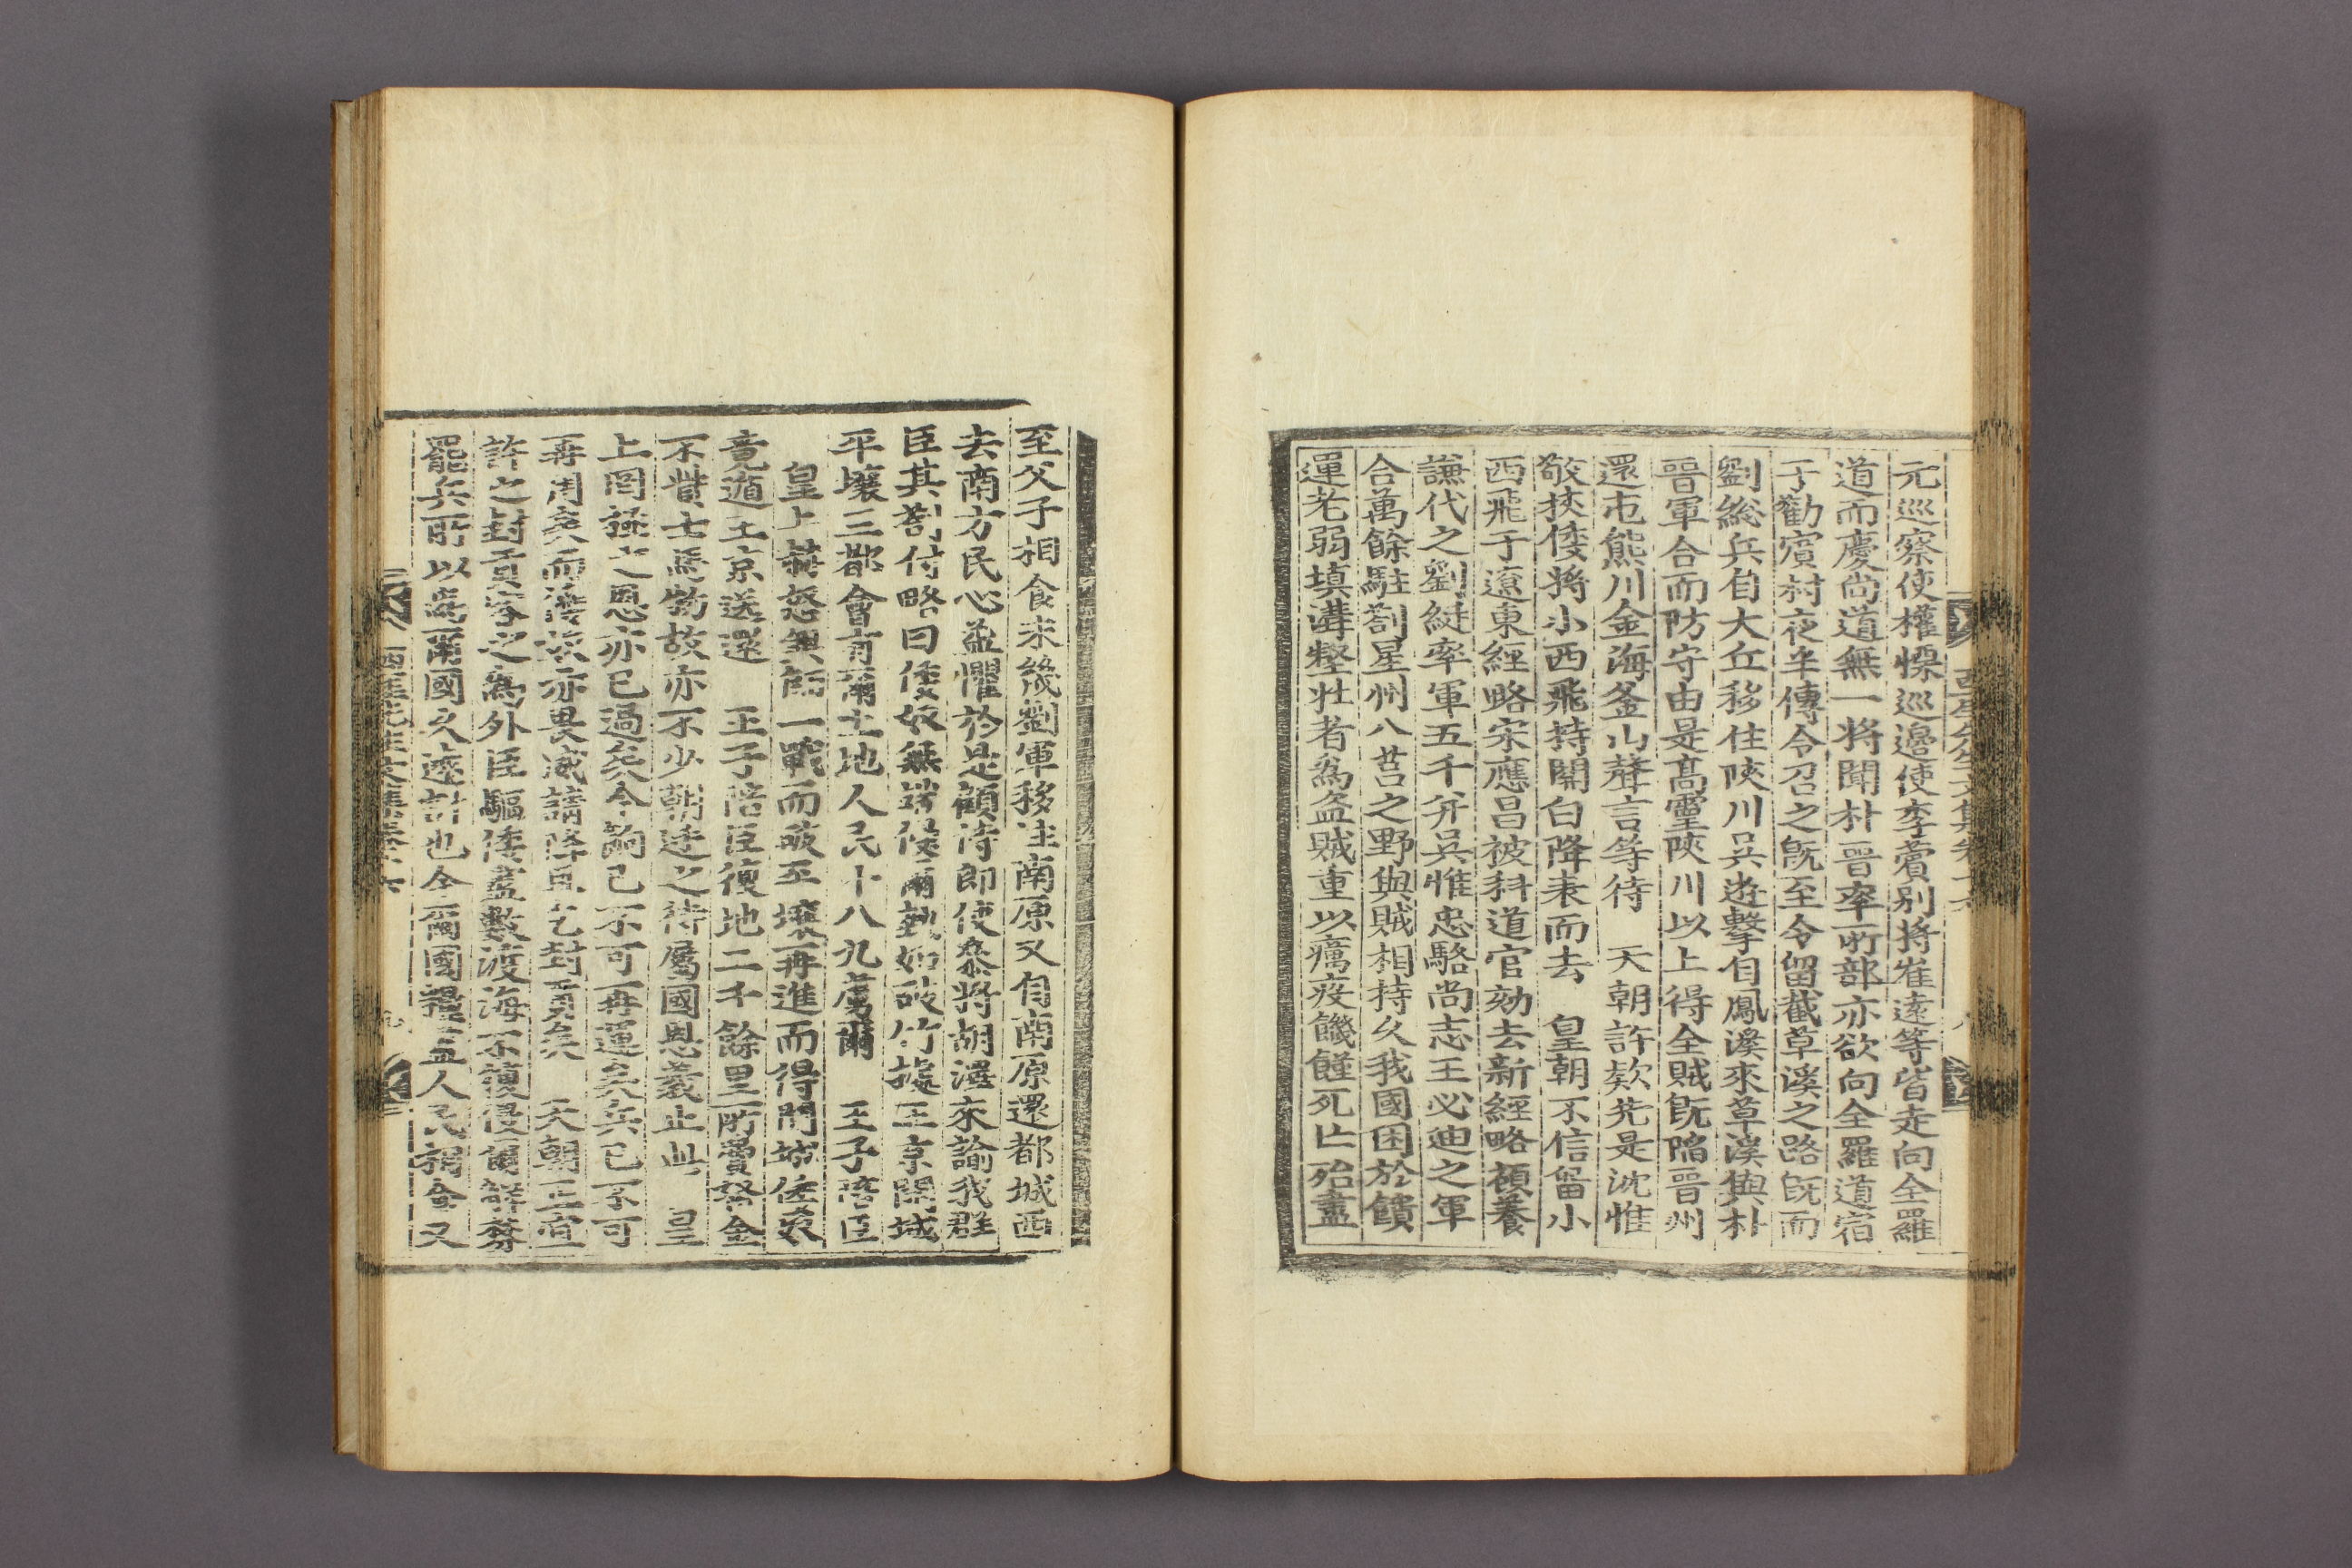 西厓先生文集卷十六
八
元巡察使權慄巡邊使李薲别將崔遠等皆走向全羅
道而慶尚道無一將聞朴晋率所部亦欲向全羅道宿
于勸賓村夜半傳令召之旣至令留截草溪之路旣而
劉緫兵自大丘移住陜川吴遊擊自鳳溪來草溪與朴
晋軍合而防守由是髙靈陜川以上得全賊旣陷晋州
還屯熊川金海釜山聲言等待 天朝許欵先是沈惟
敬挾倭將小西飛持關白降表而去 皇朝不信留小
西飛于遼東經略宋應昌被科道官劾去新經略顧養
謙代之劉綎率軍五千并吴惟忠駱尚志王必迪之軍
合萬餘駐劄星州八莒之野與賊相持久我國困於饋
運老弱塡溝壑壯者爲盜賊重以癘疫饑饉死亡殆盡
至父子相食未幾劉軍移住南原又自南原還都城西
去南方民心益懼於是顧侍郎使叅將胡澤來諭我群
臣其劄付略曰倭奴無端侵爾勢如破竹據王京開城
平壤三都會有爾土地人民十八九虜爾 王子陪臣
皇上赫怒興師一戰而破平壤再進而得開城倭奴
竟遁王京送還 王子陪臣復地二千餘里所費帑金
不貲士馬物故亦不少朝廷之待屬國恩義止此 皇
上罔極之恩亦已過矣今餉已不可再運矣兵已不可
再用矣而倭奴亦畏威請降且乞封貢矣 天朝正宜
許之封貢容之爲外臣驅倭盡數渡海不復侵爾解紛
罷兵所以爲爾國久遠計也今爾國糧盡人民相食又
西厓先生文集卷十六